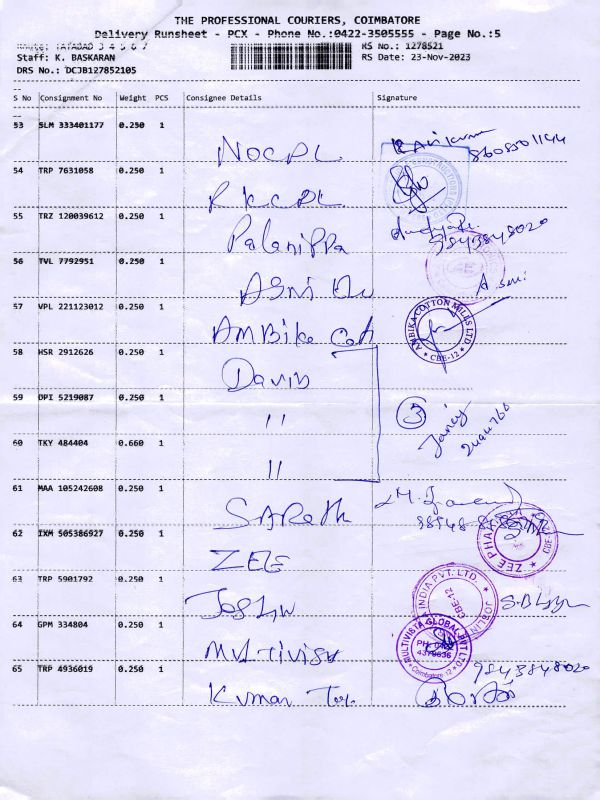 THE PROFESSIONAL COURIERS, COIMBATORE
Delivery Runsheet - PCX - Phone No.:0422-3505555 - Page No.:5
Route: TATABAD 3 4 5 6 7
RS No.: 1278521
Staff: K. BASKARAN
RS Date: 23-Nov-2023
DRS No.: DCJB127852105
S No Consignment No Weight PCS Consignee Details Signature
53 SLM 333401177 0.250 1 NOCPL
8608501144
54 TRP 7631058 0.250 1
55 TRZ 120039612 0.250 1 Palanippa
9843848020
56 TVL 7792951 0.250 1
57 VPL 221123012 0.250 1 AMBika Cot AMBIKA COTTON MILLS LTD CBE-12
58 HSR 2912626 0.250 1 David
59 DPI 5219087 0.250 1 " 3
60 TKY 484404 0.660 1 "
61 MAA 105242608 0.250 1 SARATH
62 IXM 505386927 0.250 1 ZEE
ZEE PHA CBE
63 TRP 5901792 0.250 1 Joslin JOSLIN INDIA PVT. LTD CBE-12
64 GPM 334804 0.250 1 Multivista MULTIVISTA GLOBAL PVT LTD Coimbatore-12
9843848020
65 TRP 4936019 0.250 1 Kumar Tex